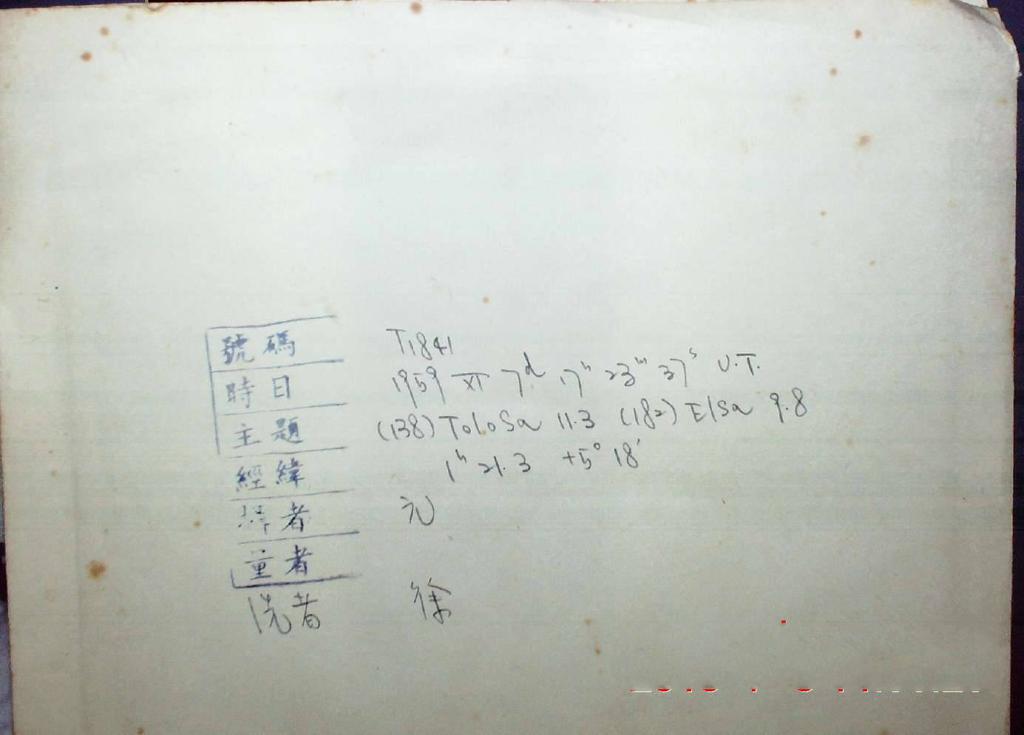 號碼 T1841
時日 1959 XI 7d 17h 23m 37s U.T.
主題 (138) Tolosa 11.3 (182) Elsa 9.8
經緯 1h 21.3 +5° 18'
者 元
量者
洗者 徐